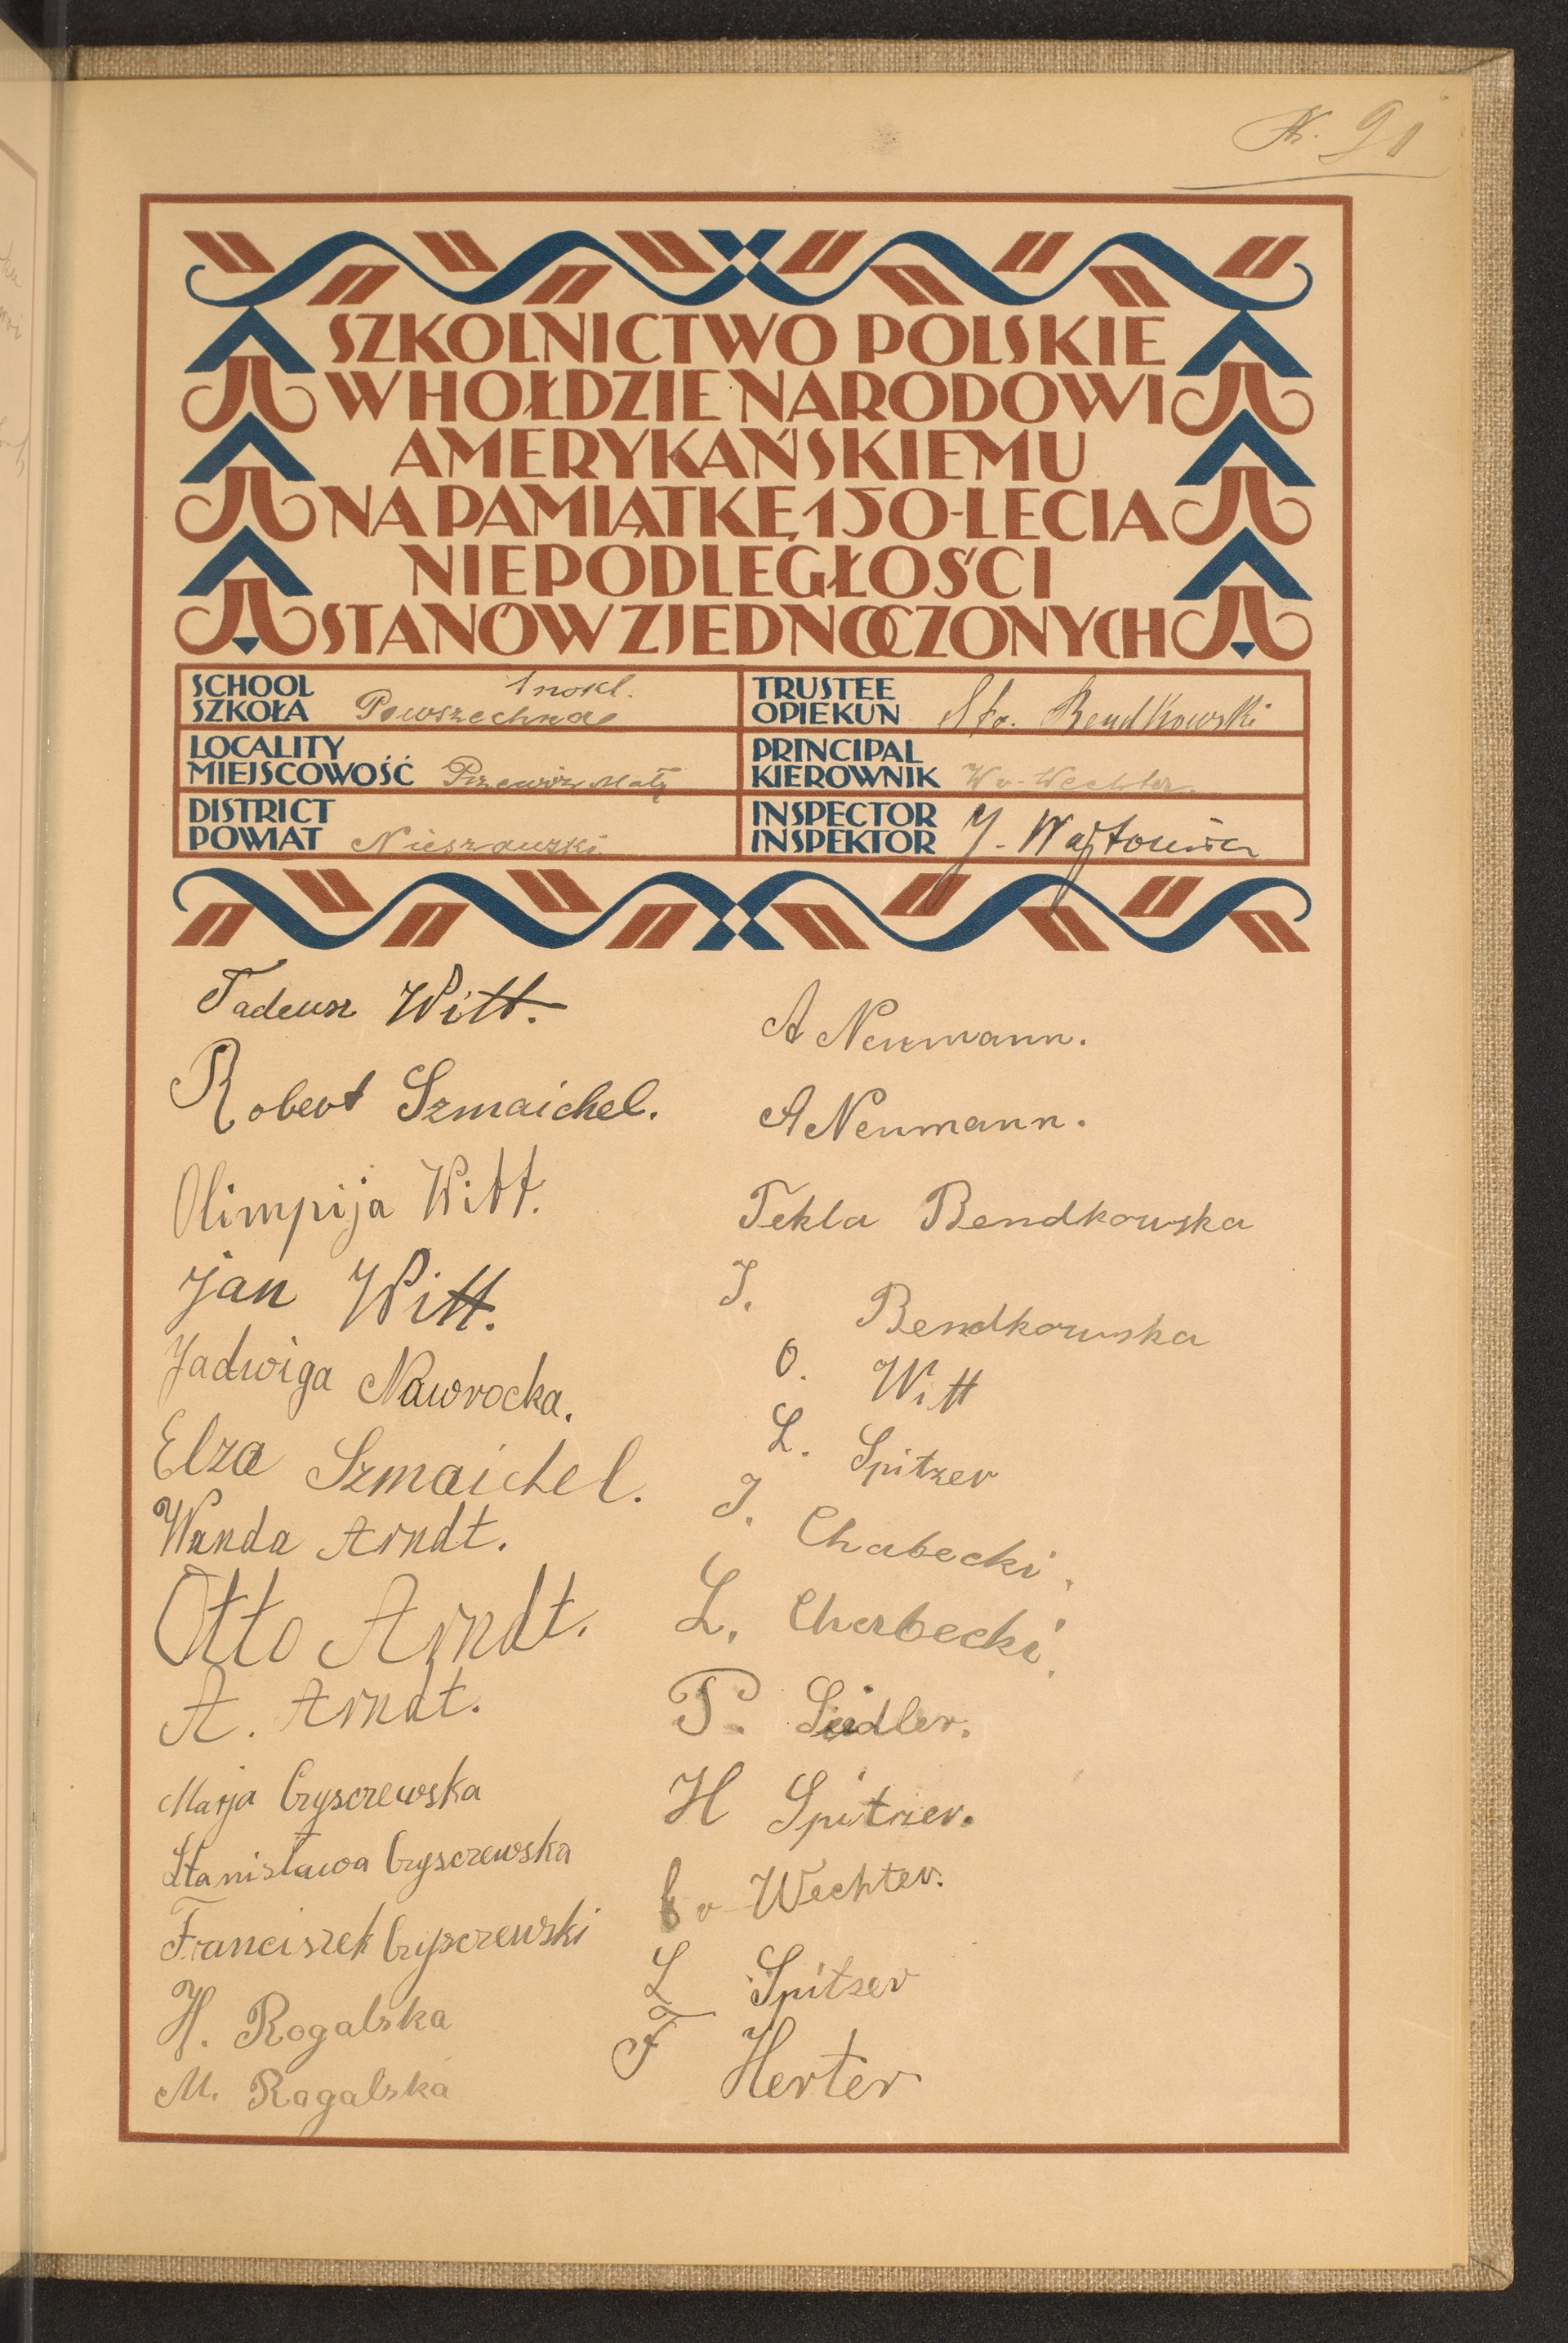 N. 91
SZKOLNICTWO POLSKIE
W HOŁDZIE NARODOWI
AMERYKAŃSKIEMU
NA PAMIĄTKĘ 150-LECIA
NIEPODLEGŁOŚCI
STANÓW ZJEDNOCZONYCH
SCHOOL
SZKOŁA
1 noskl.
Powszechna
TRUSTEE
OPIEKUN
Sta. Bendkowski
LOCALITY
MIEJSCOWOŚĆ
Przewóz Mały
PRINCIPAL
KIEROWNIK
W v. Wechter.
DISTRICT
POWIAT
Nieszawski
INSPECTOR
INSPEKTOR
J. Wajtowicz
Tadeusz Witt.
Robert Szmaichel.
Olimpija Witt.
Jan Witt.
Jadwiga Nawrocka.
Elza Szmaichel.
Wanda Arndt.
Otto Arndt.
A. Arndt.
Marja Czysczewska
Stanisława Czysczewska
Franciszek Czysczewski
H. Rogalska
M. Ragalska
A Neumann.
A Neumann.
Tekla Bendkowska
J. Bendkowska
O. Witt
L. Spitzer
J. Chabecki.
L. Charbecki.
P. Siedler.
H Spitzer.
v Wechter.
L Spitzer
F Herter